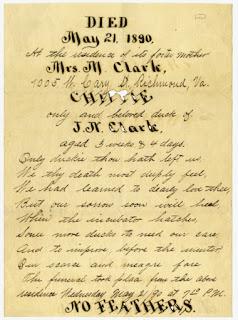 DIED
May 21, 1890,
At the residence of its foster mother
Mrs. M. Clark,
1005 W. Cary St. Richmond, Va.
only and beloved duck of
J. R. Clark,
aged 3 weeks & 4 days.
Only duckie thou hath left us,
We thy death most deeply feel,
We had learned to dearly love thee,
But our sorrow soon will heal,
When the incubator hatches
Some more ducks to need our care
And to improve before the winter
Our scarce and meagre fare
The funeral took place from the above
residence Wednesday May 2 90 at P.M.
NO FEATHERS.